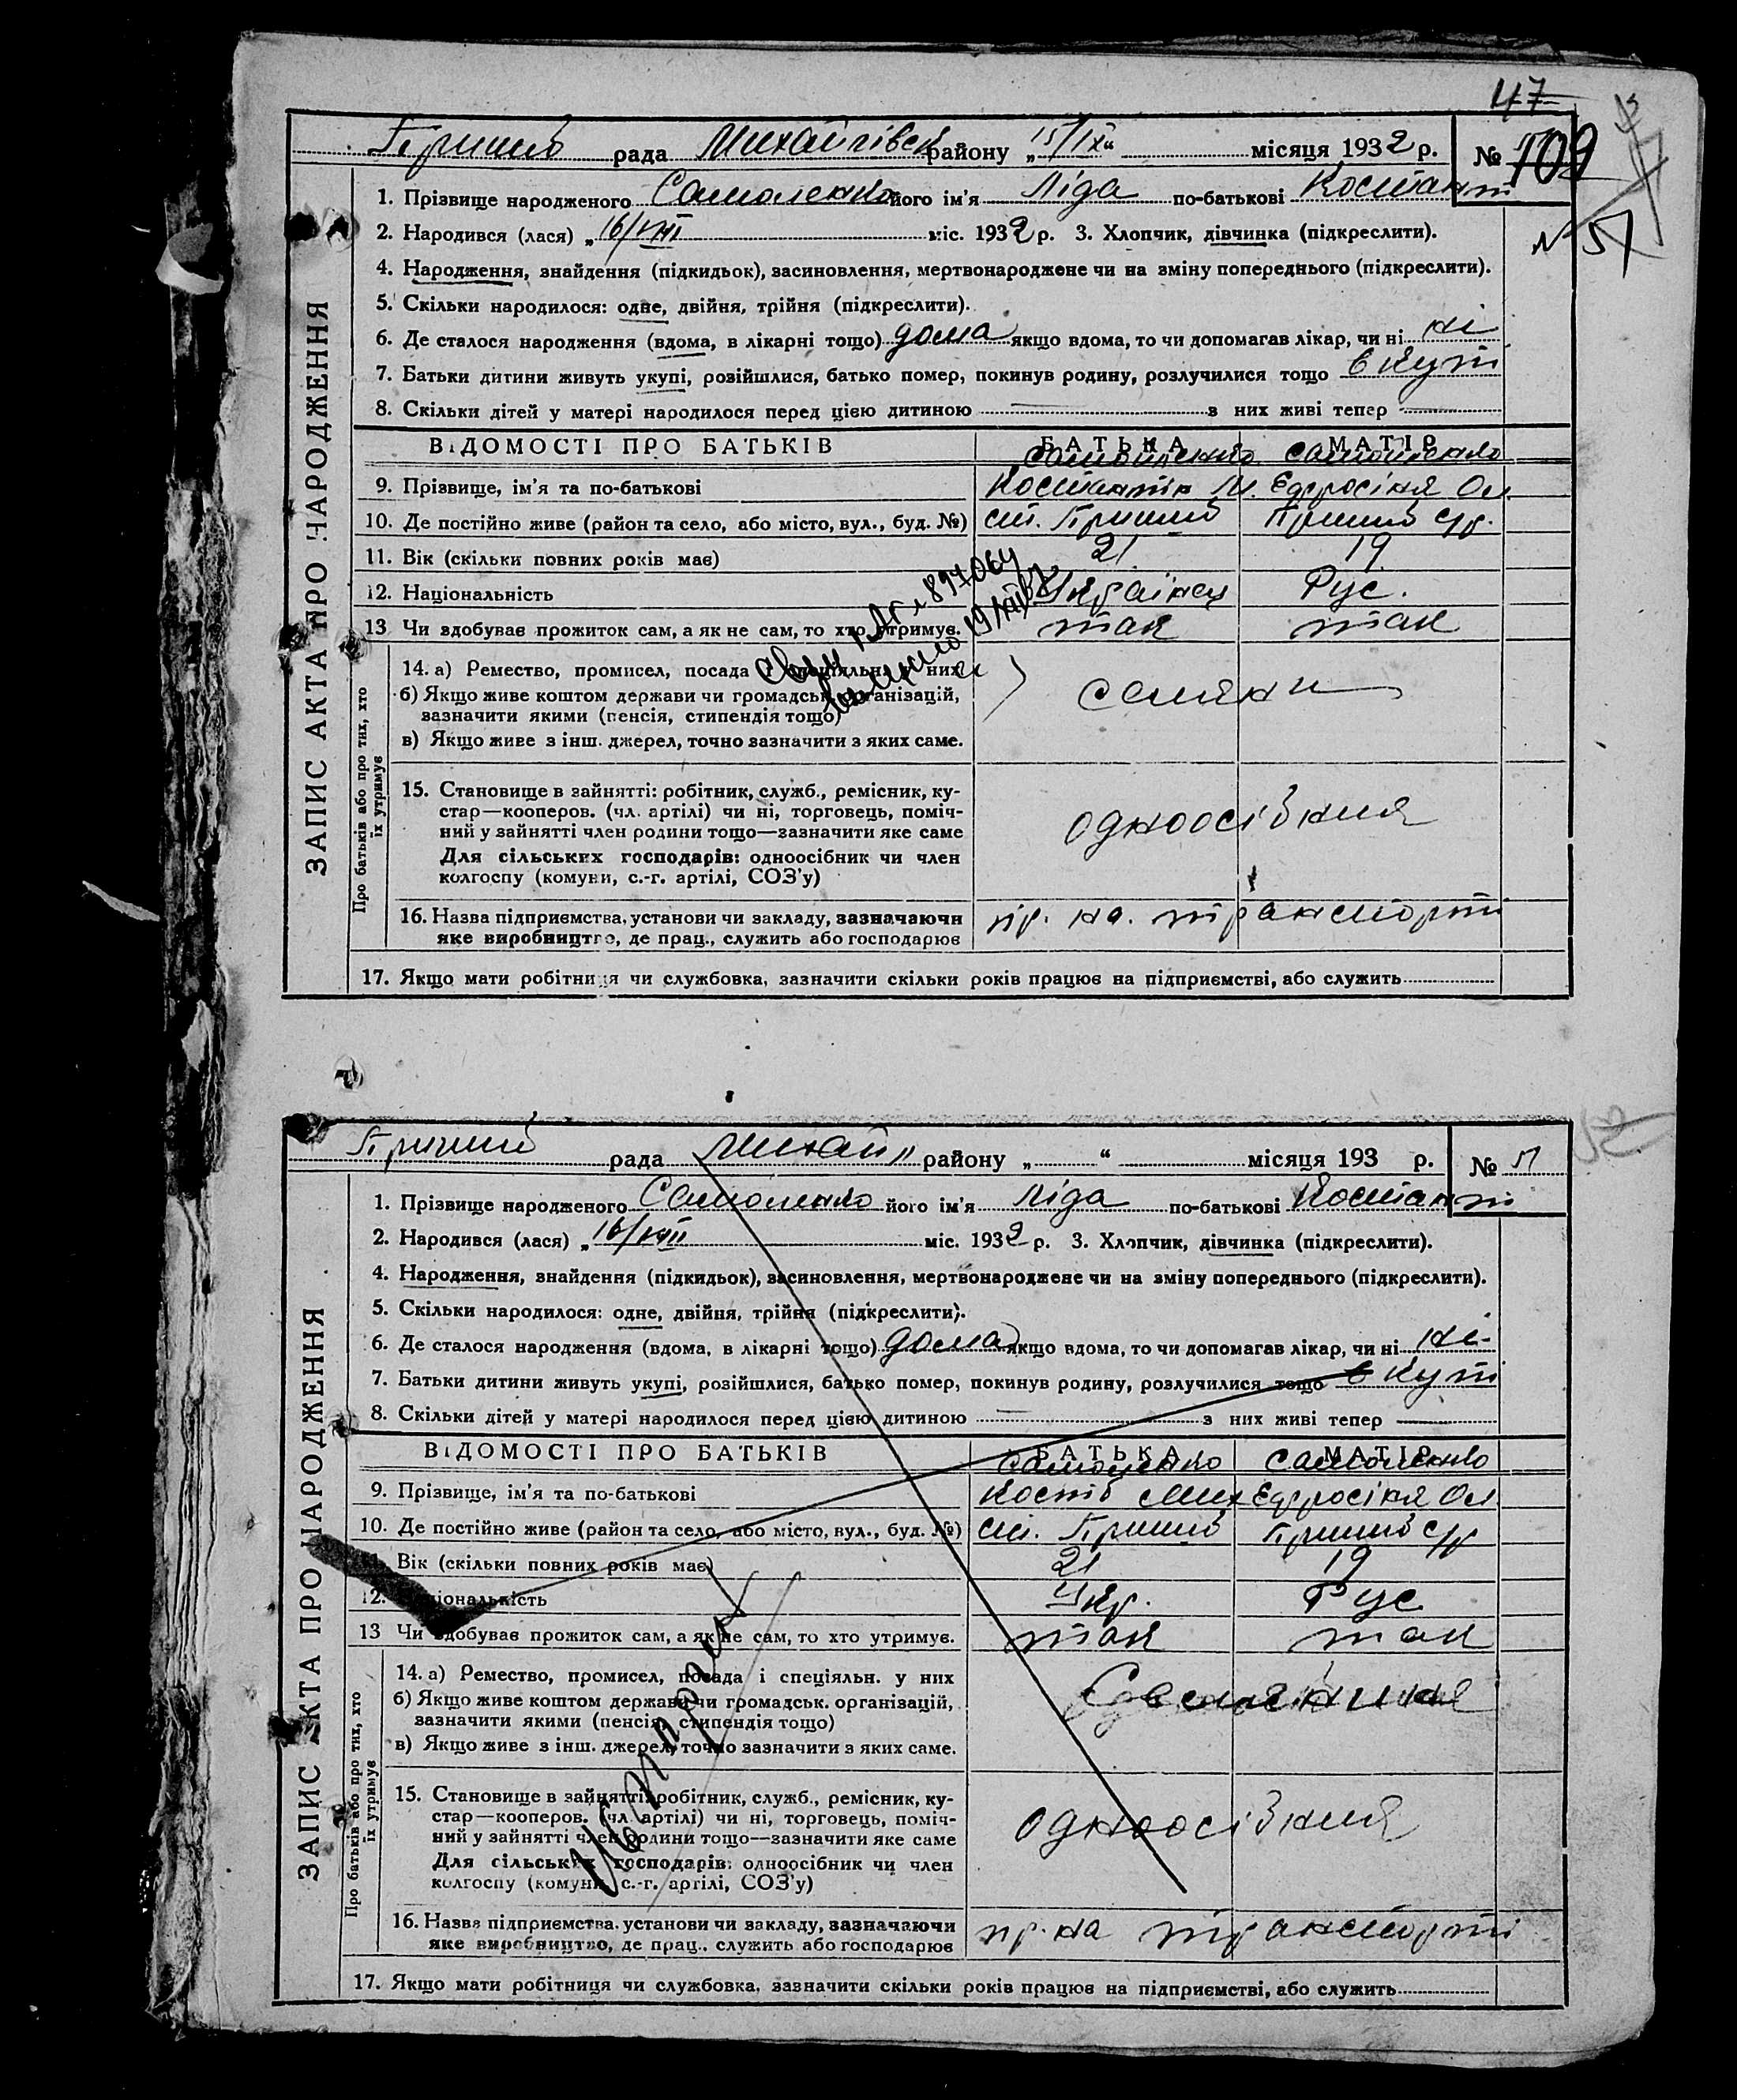 47
Пришиб рада Михайлівськ району „15/IX“ місяця 1932 р. № 109
ЗАПИС АКТА ПРО НАРОДЖЕННЯ
1. Прізвище народженого Самоленко його ім'я Ліда по-батькові Костант
2. Народився (лася) „16/VIII міс. 1932 р. 3. Хлопчик, дівчинка (підкреслити).
№ 51
4. Народження, знайдення (підкидьок), засиновлення, мертвонароджене чи на зміну попереднього (підкреслити).
5. Скільки народилося: одне, двійня, трійня (підкреслити).
6. Де сталося народження (вдома, в лікарні тощо) дома якщо вдома, то чи допомагав лікар, чи ні ні
7. Батьки дитини живуть укупі, розійшлися, батько помер, покинув родину, розлучилися тощо вкупі
8. Скільки дітей у матері народилося перед цією дитиною — з них живі тепер —
ВІДОМОСТІ ПРО БАТЬКІВ БАТЬКА МАТІР
Самойленко Самойленко
9. Прізвище, ім'я та по-батькові Костантін М. Ефросінія Ол
10. Де постійно живе (район та село, або місто, вул., буд. №) ст. Пришиб Пришиб с/р.
11. Вік (скільки повних років має) 21 19
12. Національність Українец Рус.
13 Чи здобував прожиток сам, а як не сам, то хто утримує. так так
Про батьків або про тих, хто їх утримує
14. а) Ремество, промисел, посада і спеціяльн. у них
б) Якщо живе коштом держави чи громадськ. організацій,
зазначити якими (пенсія, стипендія тощо)
в) Якщо живе з інш. джерел, точно зазначити з яких саме.
селяни
15. Становище в зайнятті: робітник, служб., ремісник, ку-
стар—кооперов. (чл. артілі) чи ні, торговець, поміч-
ний у зайнятті член родини тощо—зазначити яке саме
Для сільських господарів: одноосібник чи член
колгоспу (комуни, с.-г. артілі, СОЗ'у)
одноосібник
16. Назва підприємства, установи чи закладу, зазначаючи
яке виробництво, де прац., служить або господарює
пр. на транспорті
17. Якщо мати робітниця чи службовка, зазначити скільки років працює на підприємстві, або служить
Пришиб рада Михайл району „ “ місяця 193 р. № 51
ЗАПИС АКТА ПРО НАРОДЖЕННЯ
1. Прізвище народженого Самоленко його ім'я Ліда по-батькові Костант
2. Народився (лася) „16/VIII міс. 1932 р. 3. Хлопчик, дівчинка (підкреслити).
4. Народження, знайдення (підкидьок), засиновлення, мертвонароджене чи на зміну попереднього (підкреслити).
5. Скільки народилося: одне, двійня, трійня (підкреслити).
6. Де сталося народження (вдома, в лікарні тощо) дома якщо вдома, то чи допомагав лікар, чи ні ні
7. Батьки дитини живуть укупі, розійшлися, батько помер, покинув родину, розлучилися тощо вкупі
8. Скільки дітей у матері народилося перед цією дитиною — з них живі тепер —
ВІДОМОСТІ ПРО БАТЬКІВ БАТЬКА МАТІР
Самоленко Самоленко
9. Прізвище, ім'я та по-батькові Мих Ефросінія Ол
10. Де постійно живе (район та село, або місто, вул., буд. №) ст. Пришиб Пришиб с/р
11. Вік (скільки повних років має) 21 19
12. Національність Укр. Рус
13 Чи здобував прожиток сам, а як не сам, то хто утримує. так так
Про батьків або про тих, хто їх утримує
14. а) Ремество, промисел, посада і спеціяльн. у них
б) Якщо живе коштом держави чи громадськ. організацій,
зазначити якими (пенсія, стипендія тощо)
в) Якщо живе з інш. джерел, точно зазначити з яких саме.
15. Становище в зайнятті: робітник, служб., ремісник, ку-
стар—кооперов. (чл. артілі) чи ні, торговець, поміч-
ний у зайнятті член родини тощо—зазначити яке саме
Для сільських господарів: одноосібник чи член
колгоспу (комуни, с.-г. артілі, СОЗ'у)
одноосібник
16. Назва підприємства, установи чи закладу, зазначаючи
яке виробництво, де прац., служить або господарює
пр. на транспорті
17. Якщо мати робітниця чи службовка, зазначити скільки років працює на підприємстві, або служить